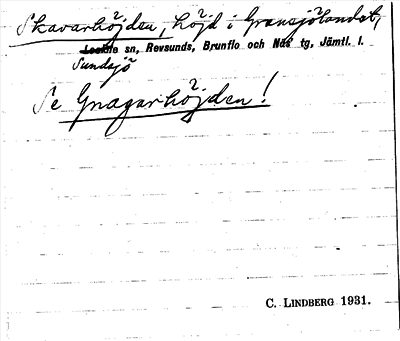 Skavarhöjden, höjd i Gransjölandet,
Lockne sn, Revsunds, Brunflo och Näs tg, Jämtl. l.
Sundsjö
Se Gnagarhöjden!
C. LINDBERG 1931.